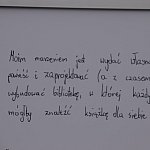 Moim marzeniem jest wydać własną
powieść i zaprojektować (a z czasem
wybudować) bibliotekę, w której każdy
mógłby znaleźć książkę dla siebie